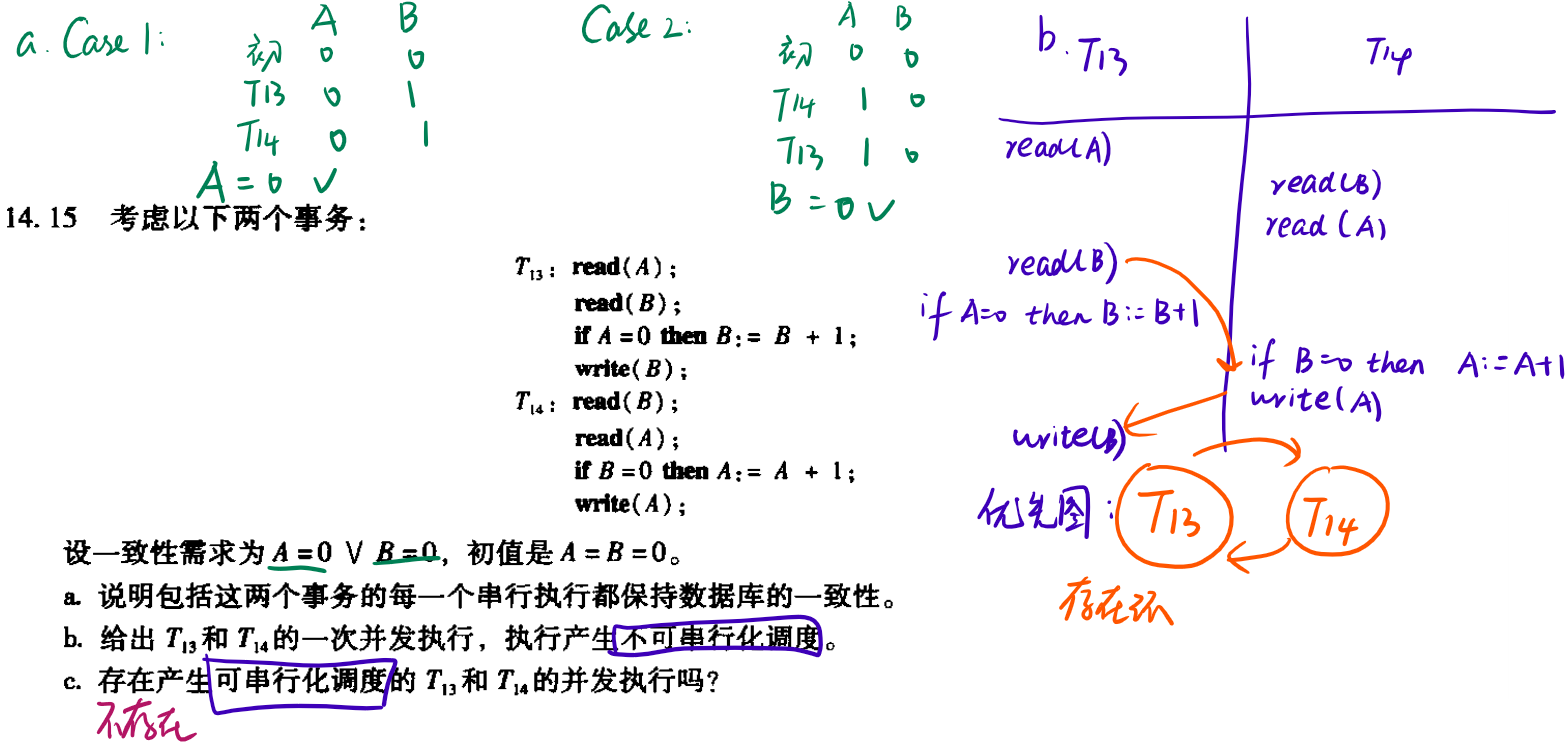 a. Case 1:
A B
初 0 0
T13 0 1
T14 0 1
A = 0 ✓
Case 2:
A B
初 0 0
T14 1 0
T13 1 0
B = 0 ✓
14.15 考虑以下两个事务：
T13：read(A)；
read(B)；
if A = 0 then B := B + 1；
write(B)；
T14：read(B)；
read(A)；
if B = 0 then A := A + 1；
write(A)；
设一致性需求为 A = 0 ∨ B = 0，初值是 A = B = 0。
a. 说明包括这两个事务的每一个串行执行都保持数据库的一致性。
b. 给出 T13和 T14的一次并发执行，执行产生不可串行化调度。
c. 存在产生可串行化调度的 T13和 T14的并发执行吗？
不存在
b. T13 T14
read(A)
read(B)
read(A)
read(B)
if A=0 then B:=B+1
if B=0 then A:=A+1
write(A)
write(B)
优先图: T13 T14
存在环